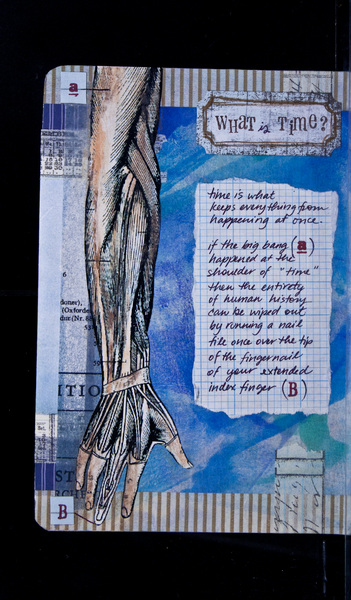 a
WHAT is TIME?
time is what
keeps everything from
happening at once.
if the big bang (a)
happened at the
shoulder of "time"
then the entirety
of human history
can be wiped out
by running a nail
file once over the tip
of the fingernail
of your extended
index finger (B)
6
ioner),
(Oxforde
ITIO
ST
RCHE
B